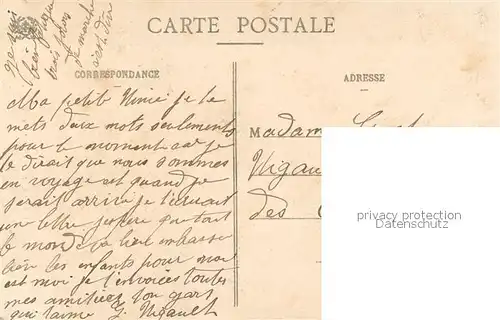 CARTE POSTALE
CORRESPONDANCE
ADRESSE
Ma petite Ninie je te
mets deux mots seulements
pour le moment car je
te dirait que nous sommes
en voyage et quand je
serait arrivé je t'envoirait
un lettre j'espère que tout
le monde va bien embrasse
bien les enfants pour moi
et moi je t'envoies toutes
mes amitiées ton gars
qui t'aime J. Nigault
Madame
Nigau
des
privacy protection
Datenschutz